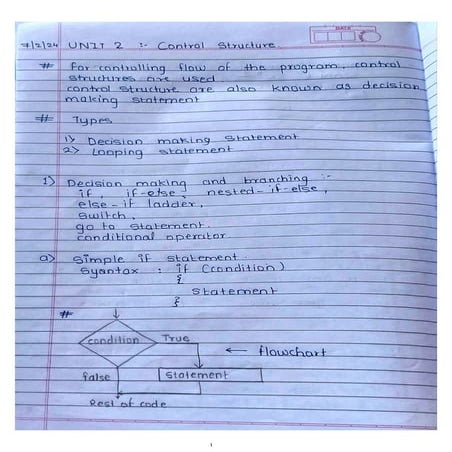 7/2/24 UNIT 2 :- Control Structure.
DATE
# for controlling flow of the program, control
structures are used.
control structure are also known as decision
making statement
# Types
1) Decision making Statement
2) Looping statement
1) Decision making and branching :-
if, if-else, nested-if-else,
else-if ladder,
switch,
go to statement.
conditional operator
a) Simple if statement.
Syantax : if (condition)
{
statement
}
#
condition True
← flowchart
false Statement
Rest of code
1